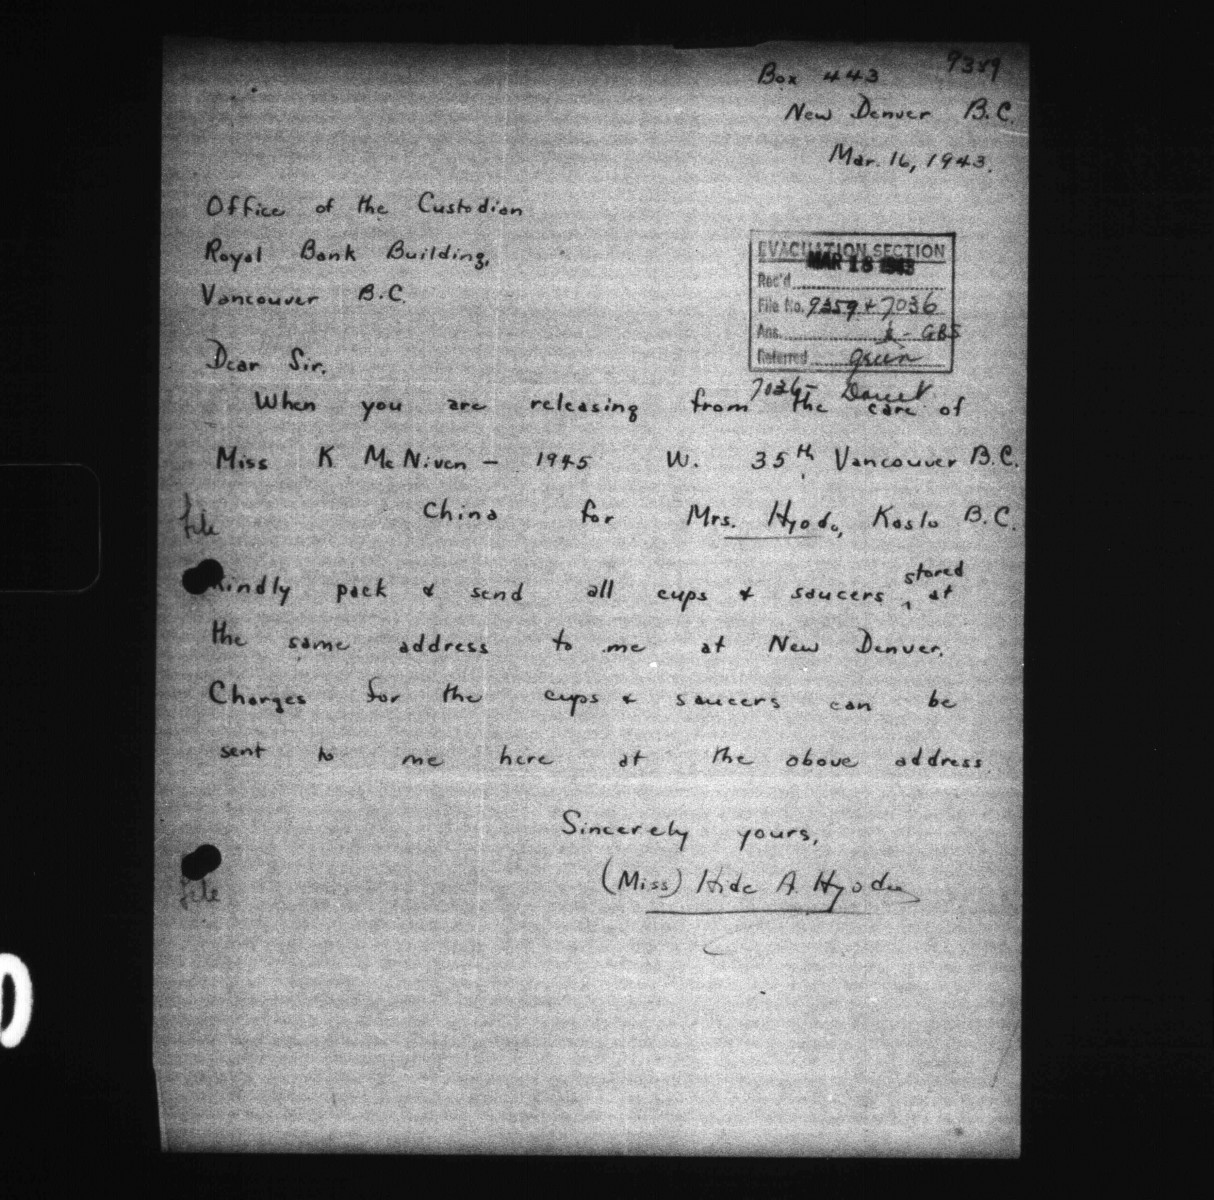 9389
Box 443
New Denver B.C.
Mar. 16, 1943.
Office of the Custodian
Royal Bank Building,
Vancouver B.C.
EVACUATION SECTION
MAR 18 1943
Rec'd
File No. 9359 + 7036
Ans. - GBS
Referred Green
Dear Sir.
7036-
When you are releasing from the care of
Miss K McNiven - 1945 W. 35th Vancouver B.C.
file
China for Mrs. Hyodo, Kaslo B.C.
Kindly pack & send all cups & saucers stored at
the same address to me at New Denver.
Charges for the cups & saucers can be
sent to me here at the above address.
Sincerely yours,
(Miss) Hide A. Hyodo
file